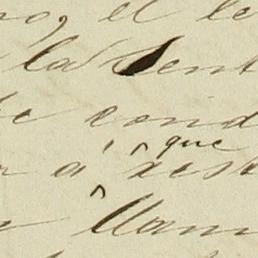 no, el le
la Sent
e cond
a que rest
llam